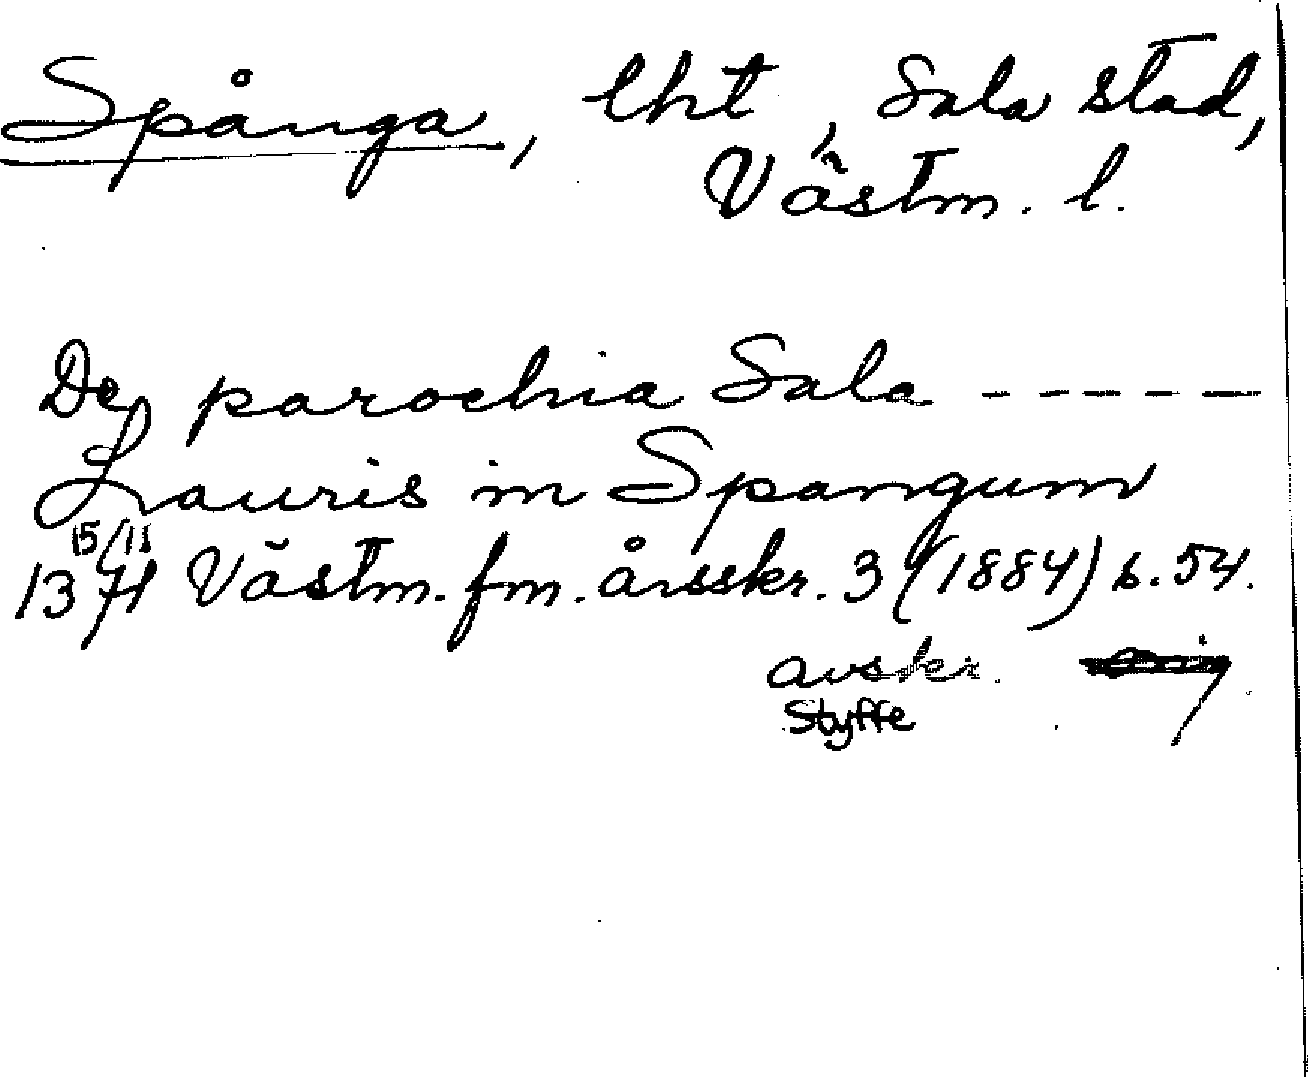 Spånga, lht, Sala stad,
Västm. l.
De parochia Sala - - - - -
Lauris in Spangum
15/11
1371 Västm. fm. årsskr. 3 (1884) s. 54.
avskr.
Styffe